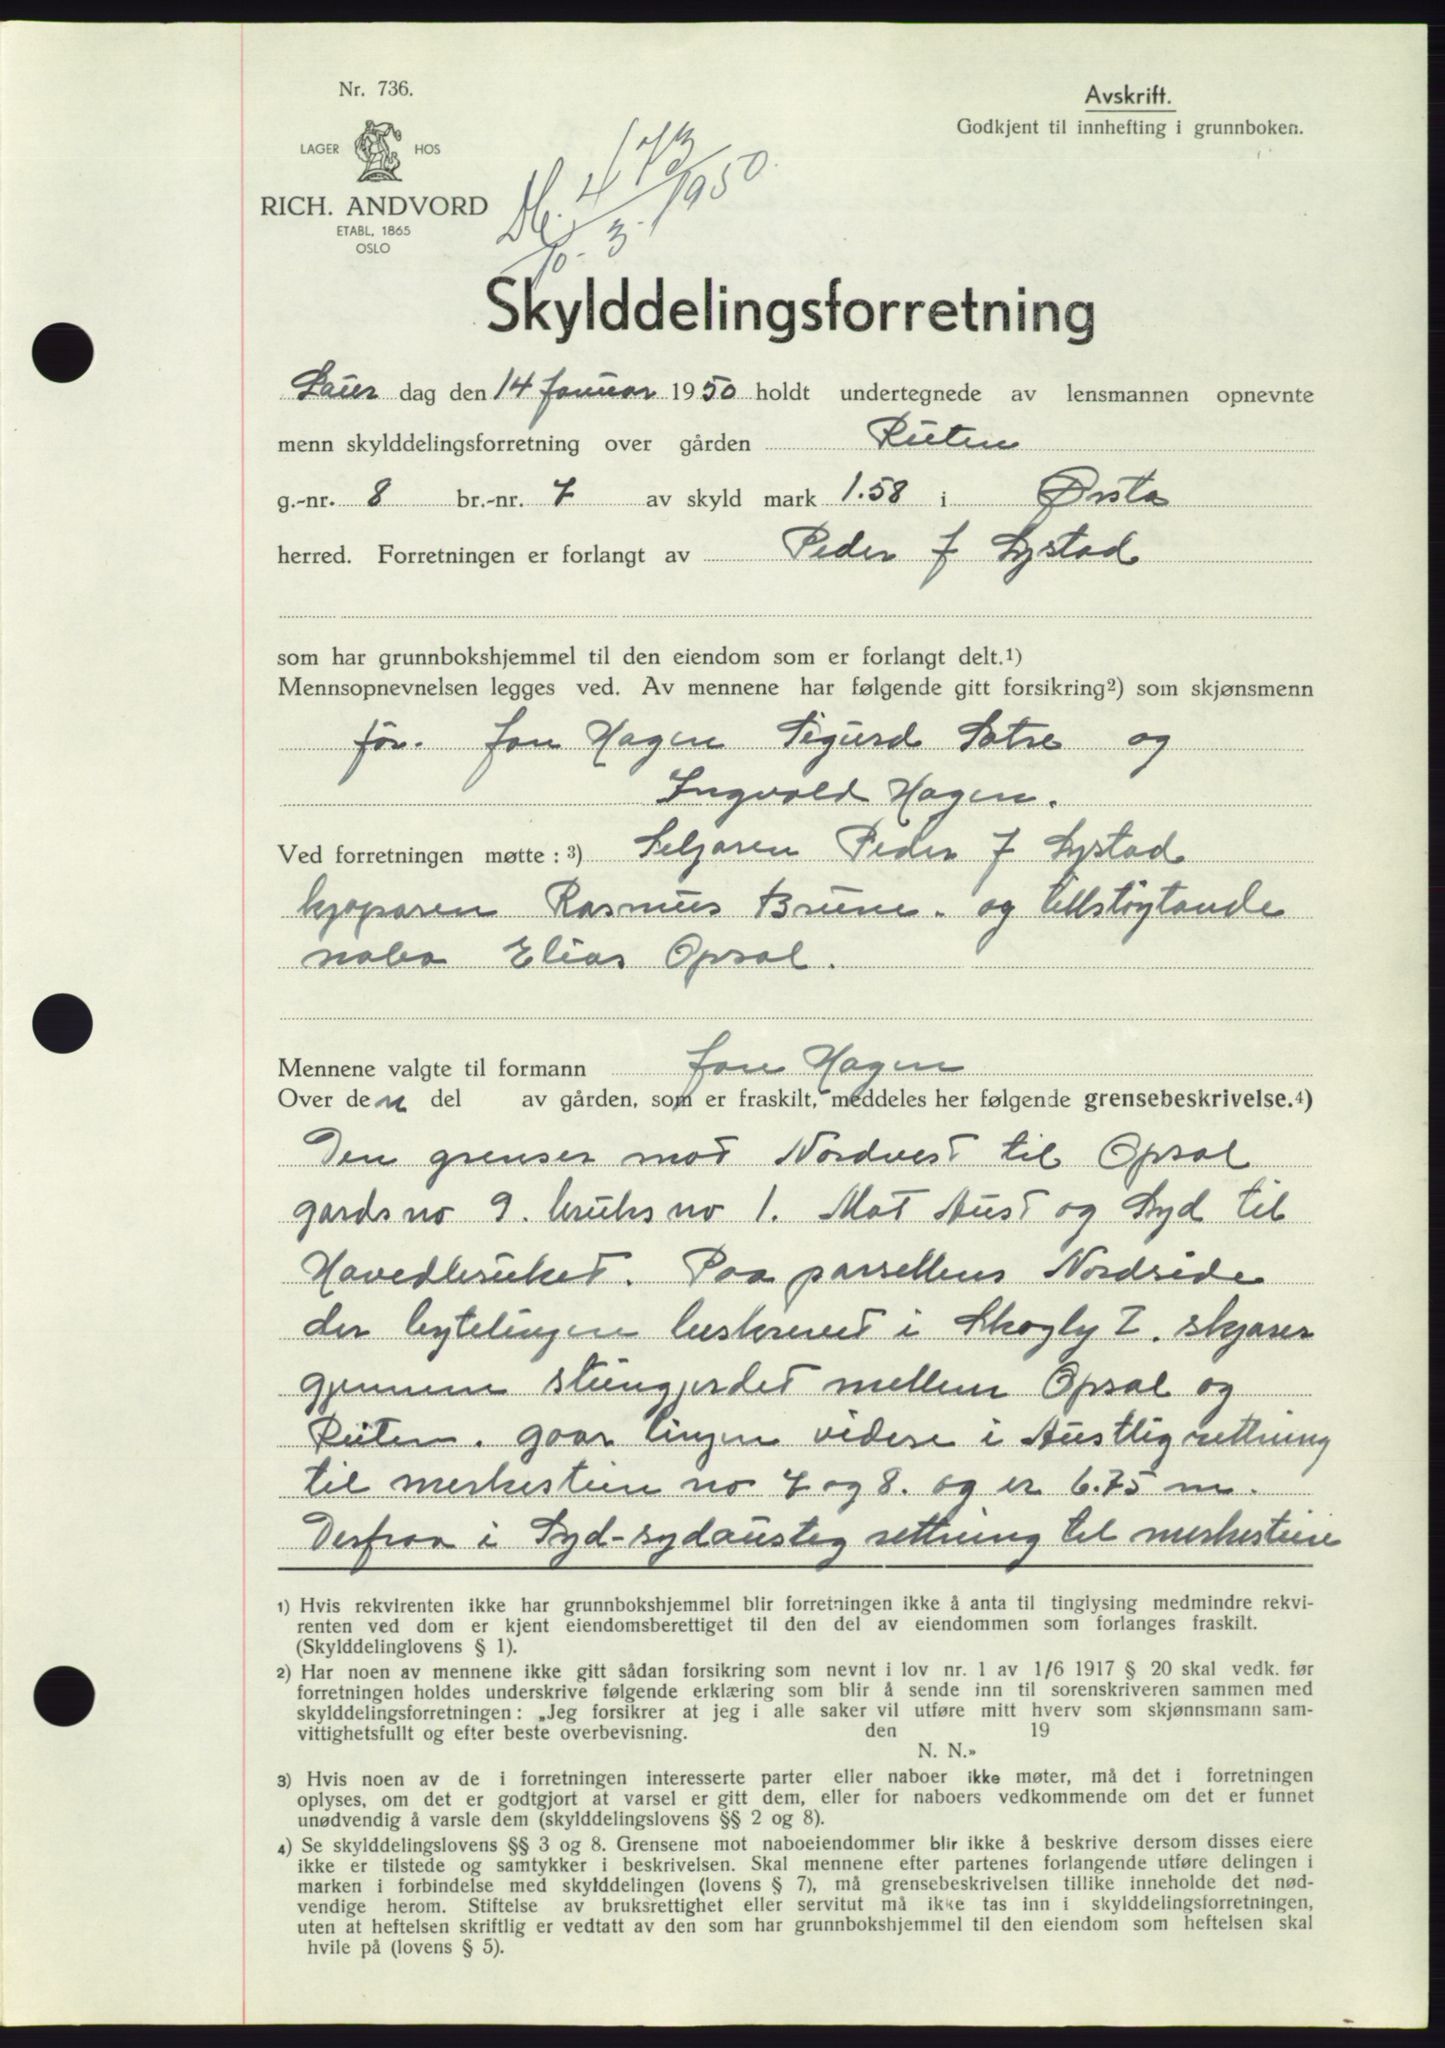 Nr. 736.
Avskrift.
Godkjent til innhefting i grunnboken.
LAGER HOS
RICH. ANDVORD
ETABL. 1865
OSLO
473/1950
10.-3.
Skylddelingsforretning
Laur dag den 14 Januar 1950 holdt undertegnede av lensmannen opnevnte
menn skylddelingsforretning over gården Reiten
g.-nr. 8 br.-nr. 7 av skyld mark 1.58 i Ørsta
herred. Forretningen er forlangt av Peder J Lystad
som har grunnbokshjemmel til den eiendom som er forlangt delt.1)
Mennsopnevnelsen legges ved. Av mennene har følgende gitt forsikring2) som skjønsmenn
før. Jon Hagen Sigurd Sætre og
Ingvald Hagen.
Ved forretningen møtte: 3) Seljaren Peder J Lystad
kjøparen Rasmus Brune. og tilstøytande
nabo Elias Opsal.
Mennene valgte til formann Jon Hagen
Over den del av gården, som er fraskilt, meddeles her følgende grensebeskrivelse.4)
Den grenser mot Nordvest til Opsal
gards no 9. bruks no 1. Mot Aust og Syd til
Hovedbruket. Paa parsellens Nordside
der bytelinjene beskrevet i Skogly I. skjærer
gjennem steingjerdet mellem Opsal og
Reiten. gaar linjen videre i Austlig rettning
til merkestein no 7 og 8. og er 6.75 m.
Derfraa i Syd-sydaustleg rettning til merkestein
1) Hvis rekvirenten ikke har grunnbokshjemmel blir forretningen ikke å anta til tinglysing medmindre rekvi-
renten ved dom er kjent eiendomsberettiget til den del av eiendommen som forlanges fraskilt.
(Skylddelinglovens § 1).
2) Har noen av mennene ikke gitt sådan forsikring som nevnt i lov nr. 1 av 1/6 1917 § 20 skal vedk. før
forretningen holdes underskrive følgende erklæring som blir å sende inn til sorenskriveren sammen med
skylddelingsforretningen: „Jeg forsikrer at jeg i alle saker vil utføre mitt hverv som skjønnsmann sam-
vittighetsfullt og efter beste overbevisning. den 19
N. N.»
3) Hvis noen av de i forretningen interesserte parter eller naboer ikke møter, må det i forretningen
oplyses, om det er godtgjort at varsel er gitt dem, eller for naboers vedkommende om det er funnet
unødvendig å varsle dem (skylddelingslovens §§ 2 og 8).
4) Se skylddelingslovens §§ 3 og 8. Grensene mot naboeiendommer blir ikke å beskrive dersom disses eiere
ikke er tilstede og samtykker i beskrivelsen. Skal mennene efter partenes forlangende utføre delingen i
marken i forbindelse med skylddelingen (lovens § 7), må grensebeskrivelsen tillike inneholde det nød-
vendige herom. Stiftelse av bruksrettighet eller servitut må ikke tas inn i skylddelingsforretningen,
uten at heftelsen skriftlig er vedtatt av den som har grunnbokshjemmel til den eiendom som heftelsen skal
hvile på (lovens § 5).